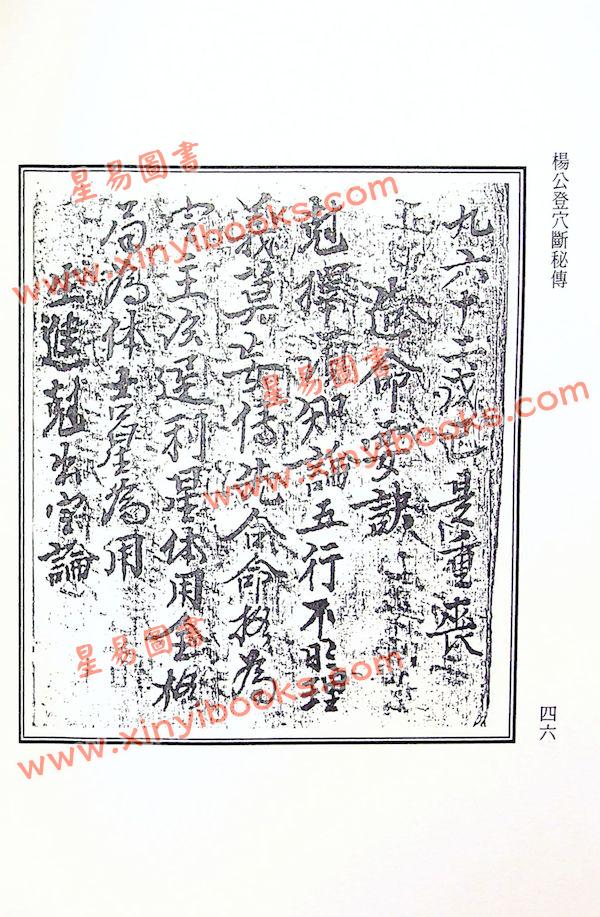 楊公登穴斷秘傳
九六十二戊己是重喪
造命要訣
尅擇 知論五行不明理
義莫言傳先合命格為
主次選利星体用全格
局為体吉星為用
進尅出 論
四六
星易圖書
www.xinyibooks.com
星易圖書
www.xinyibooks.com
星易圖書
www.xinyibooks.com